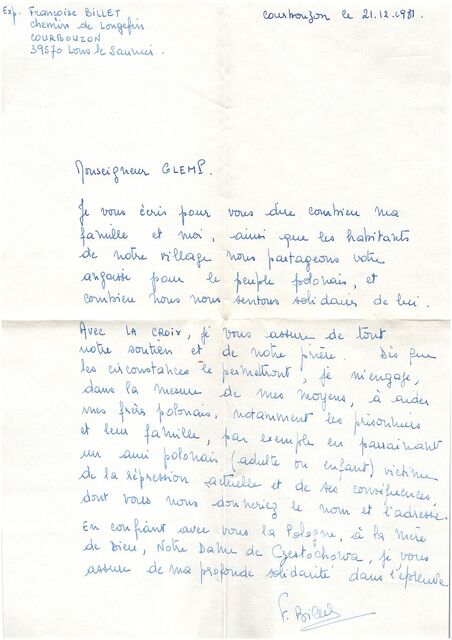 Exp. Françoise BILLET
chemin de Longefin
COURBOUZON
39570 Lons le Saunier.
Courbouzon le 21.12.1981.
Monseigneur GLEMP.
Je vous écris pour vous dire combien ma
famille et moi, ainsi que les habitants
de notre village nous partageons votre
angoisse pour le peuple polonais, et
combien nous nous sentons solidaires de lui.
Avec LA CROIX, je vous assure de tout
notre soutien et de notre prière. Dès que
les circonstances le permettront, je m'engage,
dans la mesure de mes moyens, à aider
mes frères polonais, notamment les prisonniers
et leur famille, par exemple en parrainant
un ami polonais (adulte ou enfant) victime
de la répression actuelle et de ses conséquences,
dont vous nous donneriez le nom et l'adresse.
En confiant avec vous la Pologne, à la mère
de Dieu, Notre Dame de Czestochowa, je vous
assure de ma profonde solidarité dans l'épreuve
F. Billet